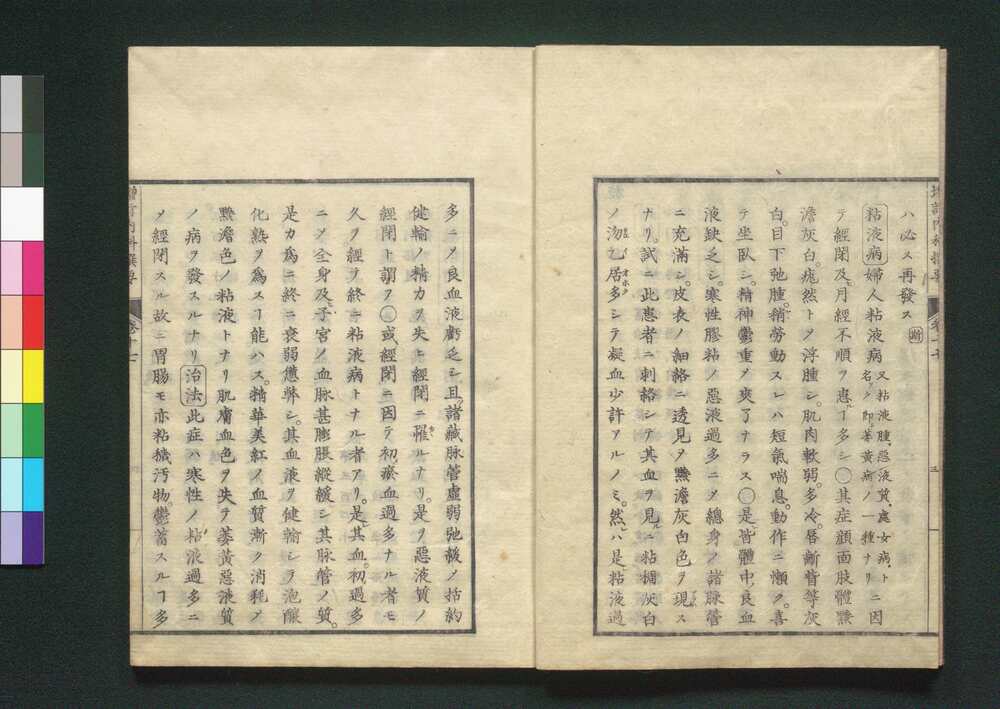 ハ必ス再發ス
粘液病 婦人粘液病 又粘液腫、惡液質、處女病、ト名ク即チ萎黃病ノ一種ナリ ニ因
テ經閉及ヒ月經不順ヲ患ル丁多シ○其症顔面肢體黲
澹灰白。痝然トメ浮腫シ。肌肉軟弱。多冷。唇齗皆等灰
白。目下弛腫。稍勞動スレハ短氣喘息。動作ニ懶ク。喜
テ坐臥シ。精神鬱重メ爽了ナラス○是レ皆體中良血
液缺乏シ。寒性膠粘ノ惡液過多ニメ總身ノ諸脉管
ニ充滿シ。皮表ノ細絡ニ透見メ黲澹灰白色ヲ現ス
ナリ。試ニ此患者ニ刺絡シテ其血ヲ見ルニ粘稠灰白
ノ汚乙居多シテ凝血少許アルノミ。然レハ是粘液過
多ニメ良血液虧乏シ且諸藏脉管虚弱弛緩メ括約
健輸ノ精力ヲ失ヒ經閉ニ罹ルナリ。是ヲ惡液質ノ
經閉ト謂フ○或ハ經閉ニ因テ初瘀血過多ナル者モ
久ヲ經ヲ終ニ粘液病トナル者アリ。是レ其血初過多
ニメ全身及ヒ子宮ノ血脉甚膨脹縱緩シ其脉管ノ質。
是カ為ニ終ニ衰弱憊弊シ。其血液ヲ健輸シヲ泡釀
化熟ヲ為ス丁能ハス。精華美紅ノ血質漸ク消耗メ
黲澹色ノ粘液トナリ肌膚血色ヲ失テ萎黃惡液質
ノ病ヲ發スルナリ 治法 此症ハ寒性ノ粘液過多ニ
メ經閉スル故ニ胃腸モ亦粘穢汚物。鬱蓄スル丁多